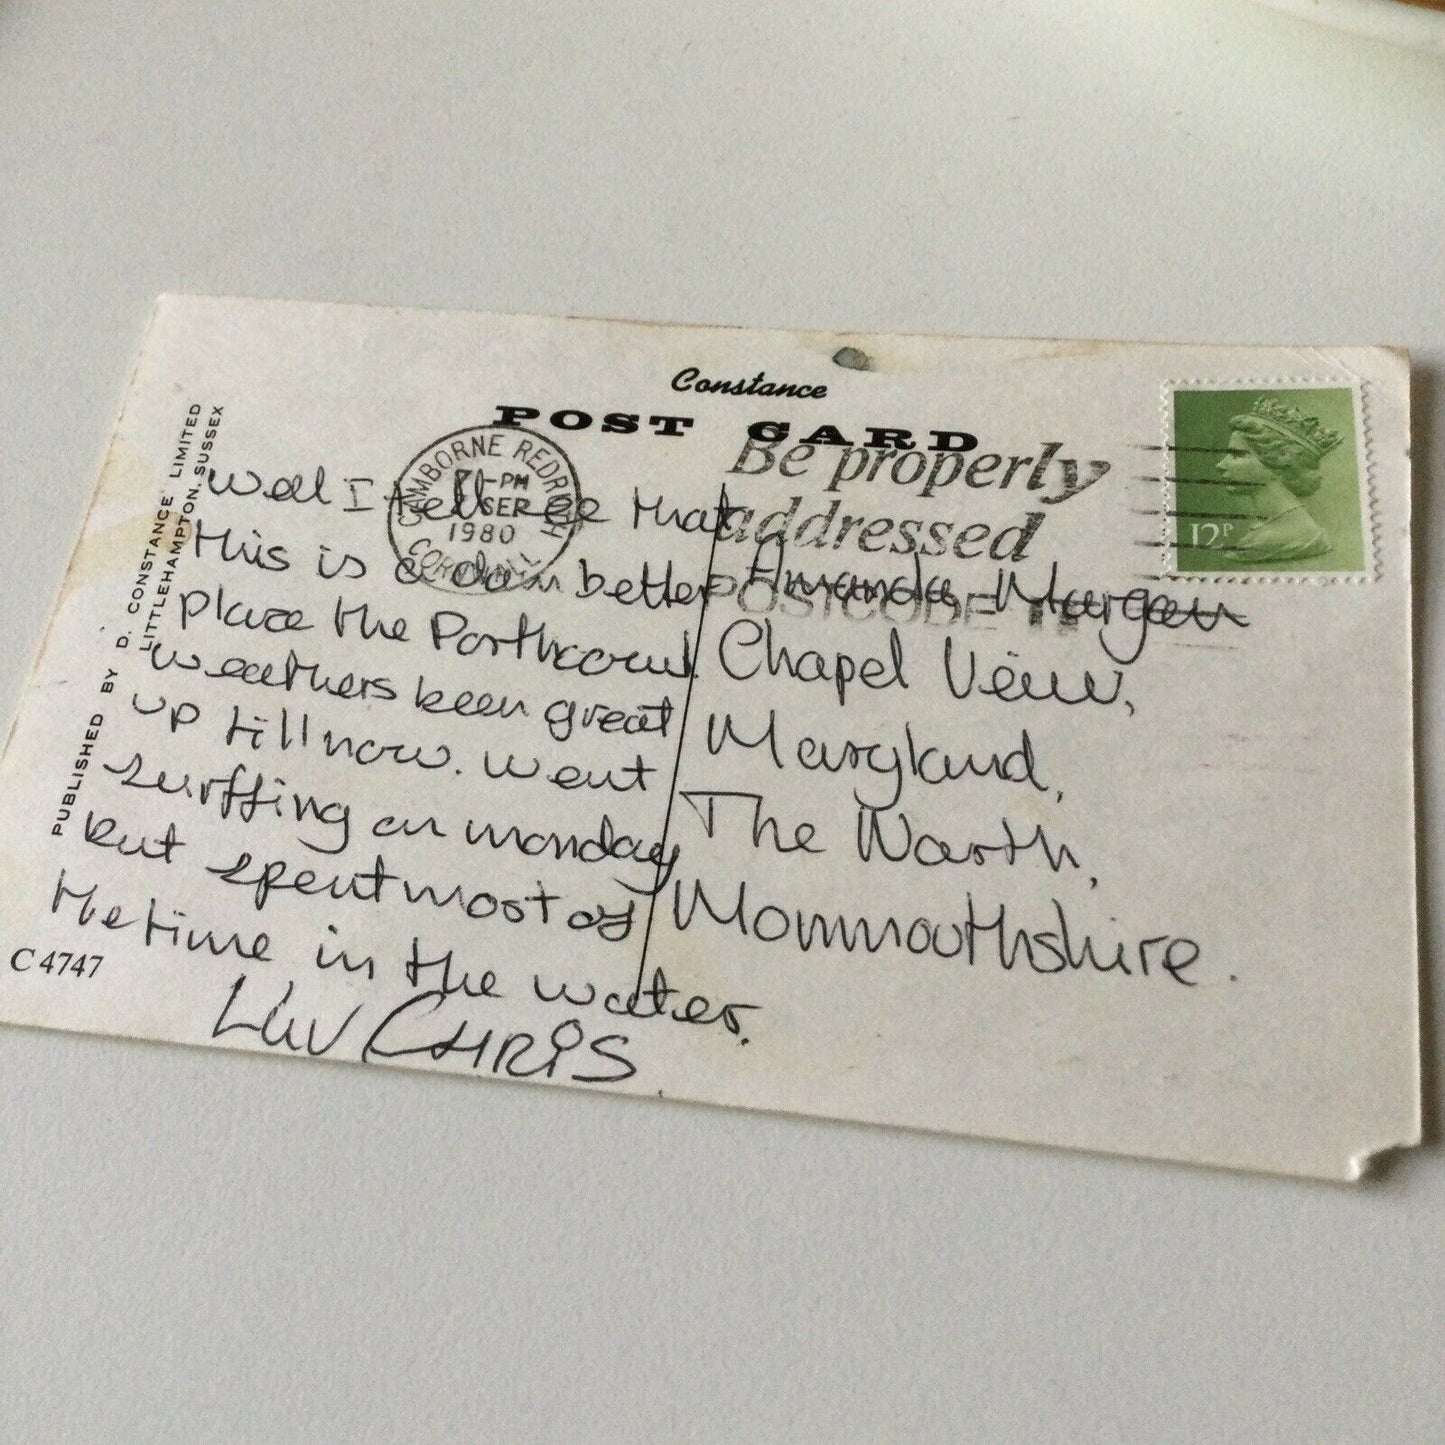 Constance
POST CARD
PUBLISHED BY D. CONSTANCE LIMITED
LITTLEHAMPTON, SUSSEX
C 4747
CAMBORNE REDRUTH
-PM
SEP
1980
CORNWALL
Be properly
addressed
POSTCODE IT
12P
Well I tell ee that
this is a dam better
place the Porthcowl.
weathers been great
up till now. went
surffing on monday
but spent most of
the time in the water.
Luv CHRIS
Amanda Morgan
Chapel View,
Maryland,
The Narth,
Monmouthshire.